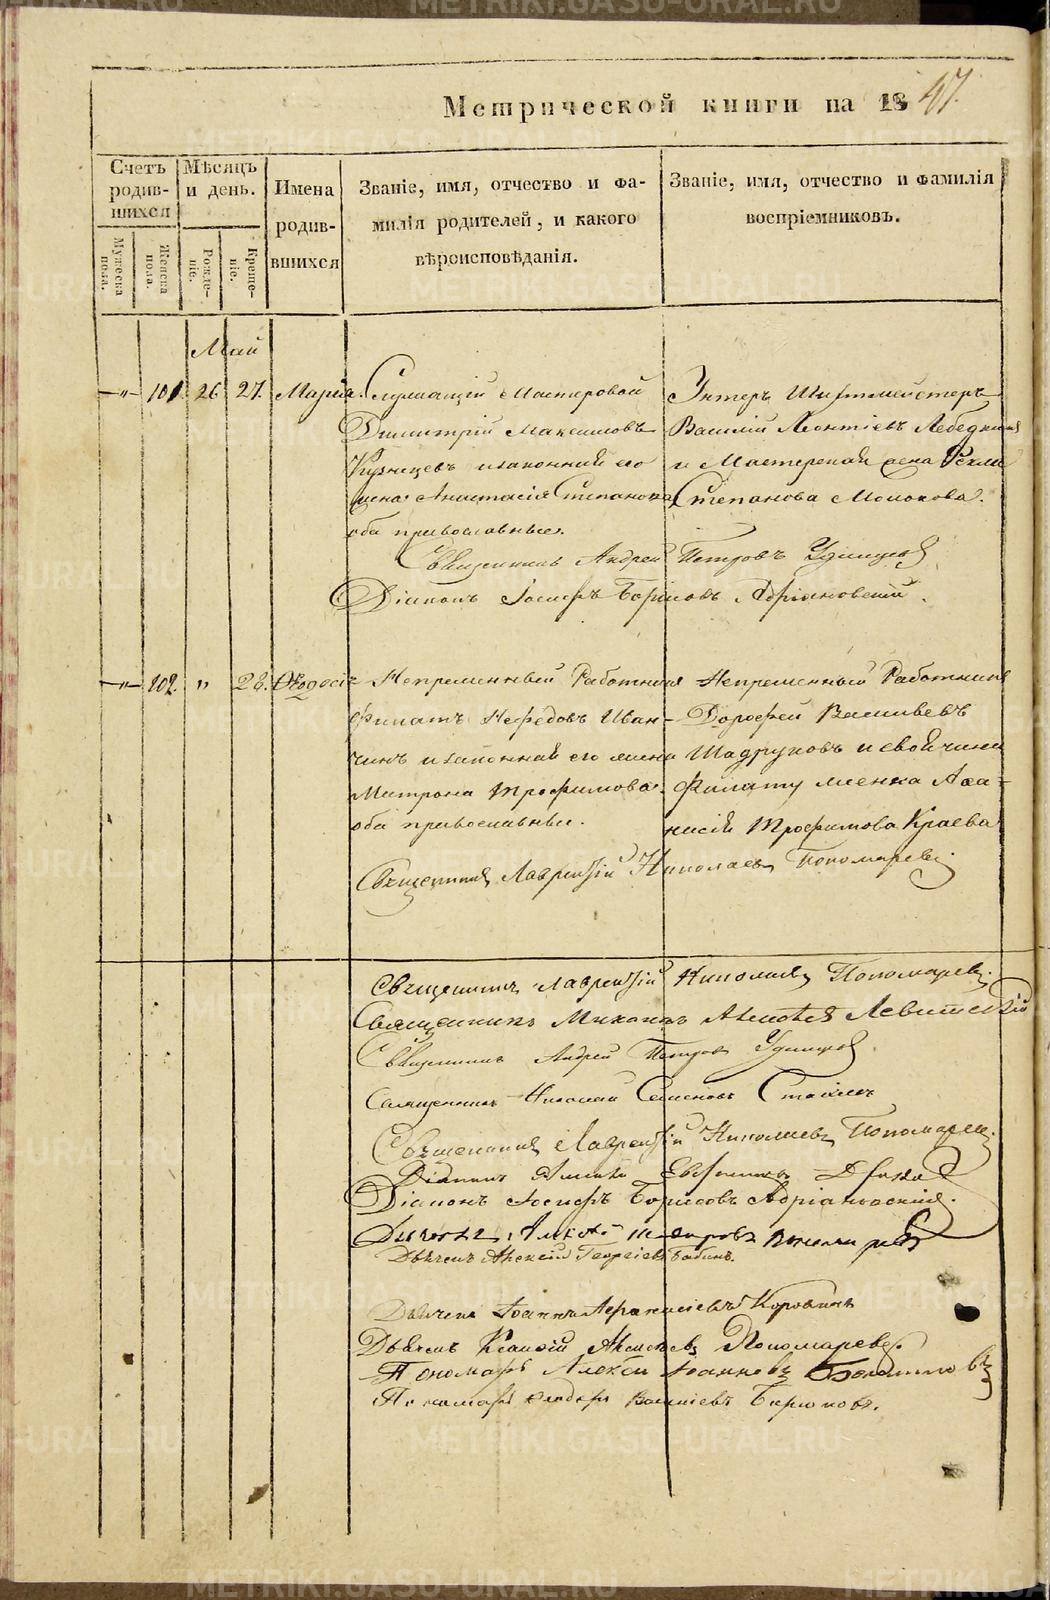 Метрической книги на 1847.
Счетъ родив-шихся
Мѣсяцъ и день.
Имена родив-вшихся
Званіе, имя, отчество и фа-
милія родителей, и какого
вѣроисповѣданія.
Званіе, имя, отчество и фамилія
воспріемниковъ.
Мужеска пола.
Женска пола.
Рожде-ніе.
Креще-ніе.
Май
—"— 101 26 27. Марія. Служащій Мастеровой
Димитрій Максимовъ
Кузнецовъ и законная его
жена Анастасія Степанова
оба православные.
Унтеръ Шихтмейстеръ
Василій Леонтіевъ
и Мастерская жена
Степанова
Священникъ Андрей Петровъ Удинцовъ
Діаконъ Іосифъ Борисовъ Адріановскій.
—"— 102. " 28. Ѳеодосія
Непременный Работникъ
Филатъ Нефедовъ Иван-
чинъ и законная его жена
Матрона Трофимова.
оба православные.
Непременный Работникъ
Дорофей Васильевъ
Шадруковъ и
Филату женка Аѳа-
насія Трофимова Краева
Священникъ Лаврентій Николаевъ Пономаревъ.
Священникъ Лаврентій Николаевъ Пономаревъ.
Священникъ Михаилъ Алексѣевъ Левитскій
Священникъ Андрей Петровъ Удинцовъ.
Священникъ Николай Семеновъ
Священникъ Лаврентій Николаевъ Пономаревъ.
Діаконъ
Діаконъ Іосифъ Борисовъ Адріановскій.
Дьячекъ Алексѣй Петровъ Пономаревъ
Дьячекъ Алексѣй Георгіевъ Бабинъ.
Дьячекъ Іоаннъ Аѳанасіевъ Коровинъ
Дьячекъ Алексѣевъ Пономаревъ.
Пономарь Алексѣй Іоанновъ
Пономарь Ѳедоръ Василіевъ Бирюковъ.
METRIKI.GASO-URAL.RU